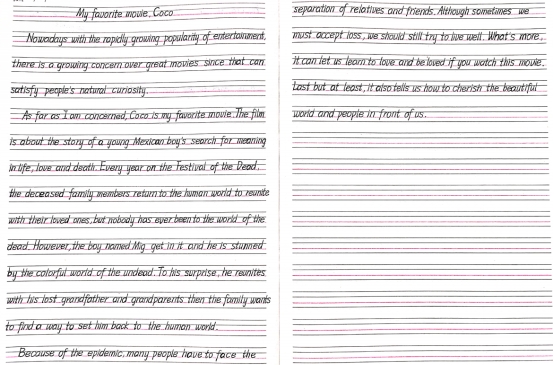 My favorite movie, Coco
Nowadays with the rapidly growing popularity of entertainment,
there is a growing concern over great movies since that can
satisfy people's natural curiosity.
As far as I am concerned, Coco is my favorite movie. The film
is about the story of a young Mexican boy's search for meaning
in life, love and death. Every year on the Festival of the Dead,
the deceased family members return to the human world to reunite
with their loved ones, but nobody has ever been to the world of the
dead. However, the boy named Mig get in it and he is stunned
by the colorful world of the undead. To his surprise, he reunites
with his lost grandfather and grandparents then the family wants
to find a way to set him back to the human world.
Because of the epidemic, many people have to face the
separation of relatives and friends. Although sometimes we
must accept loss, we should still try to live well. What's more,
it can let us learn to love and be loved if you watch this movie.
Last but at least, it also tells us how to cherish the beautiful
world and people in front of us.